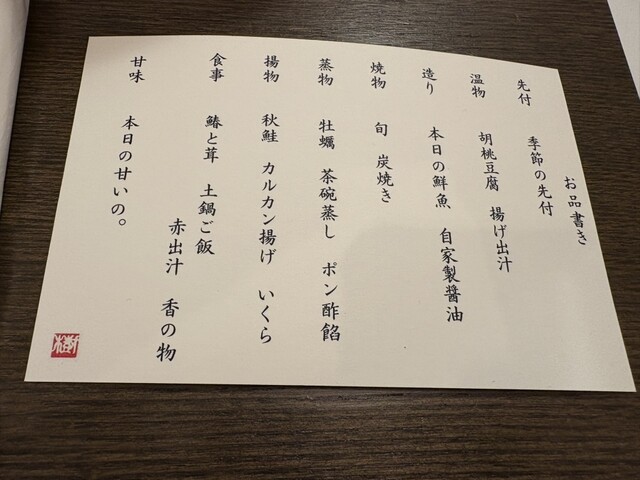 お品書き
先付　季節の先付
温物　胡桃豆腐　揚げ出汁
造り　本日の鮮魚　自家製醤油
焼物　旬　炭焼き
蒸物　牡蠣　茶碗蒸し　ポン酢餡
揚物　秋鮭　カルカン揚げ　いくら
食事　鰆と茸　土鍋ご飯
赤出汁　香の物
甘味　本日の甘いの。